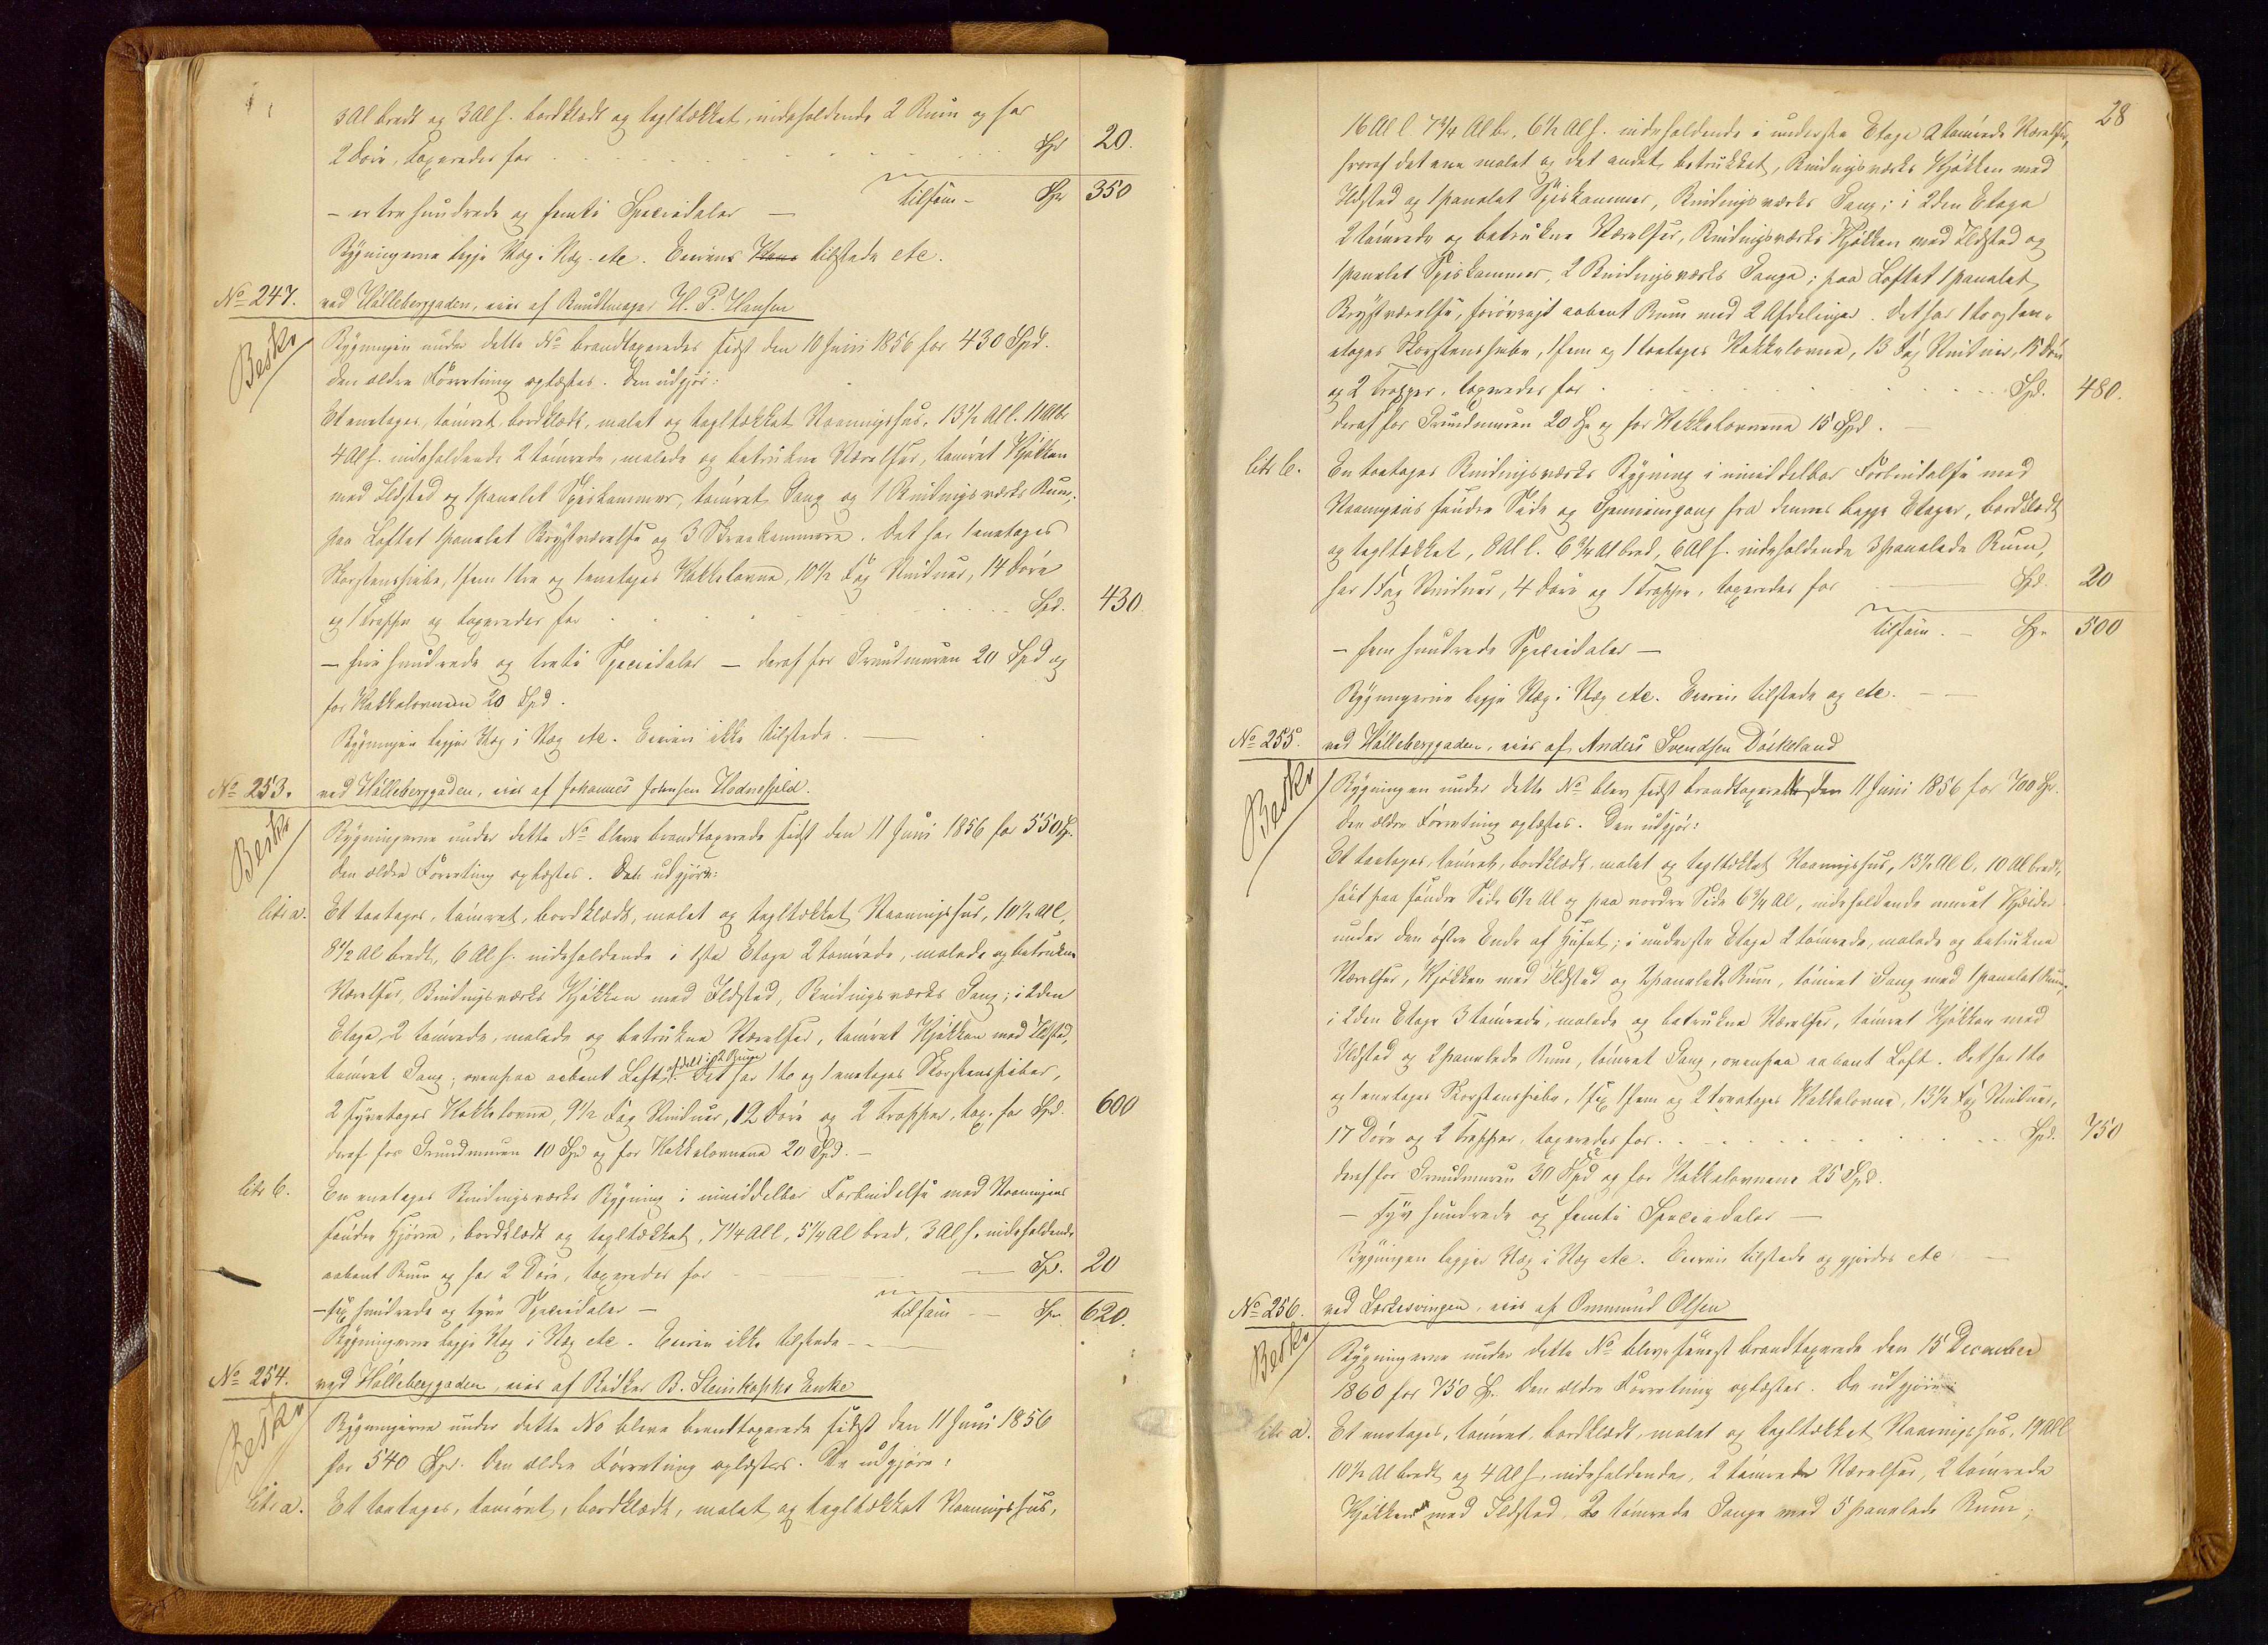 3 Al bredt og 3 Al h. bordklædt og tegltækket, indeholdende 2 Rum og har
2 Døre, taxeredes for Spd 20.
tilsam - Spd 350
- er tre hundrede og femti Speciedaler -
Bygningerne ligge Væg i Væg etc. Eieren tilstede etc.
No 247. ved Hølleberggaden, eies af Bundtmager H. P. Hansen
Beskr
Bygningen under dette No brandtaxeredes sidst den 10 Juni 1856 for 430 Spd.
den ældre Forretning oplæstes. Den udgjør:
Et enetages, tømret, bordklædt, malet og tegltækket Vaaningshus, 13½ Al l. 11 Al br
4 Al h. indeholdende 2 tømrede, malede og betrukne Værelser, tømret Kjøkken
med Ildsted og 1 panelet Spiskammer, tømret Gang og 1 Bindingsværks Rum;
paa Loftet 1 panelet Kvistværelse og 3 Skraakammere. Det har 1 enetages
Skorstenspibe, 1 fem 1 tre og 1 enetages Kakkelovne, 10½ Fag Vinduer, 14 Døre
og 1 Trappe og taxeredes for Spd. 430
- fire hundrede og treti Speciedaler - deraf for Grundmuren 20 Spd og
for Kakkelovnene 20 Spd.
Bygningen ligger Væg i Væg etc. Eieren ikke tilstede.
No 253. ved Hølleberggaden, eies af Johannes Johnsen Hodnefjeld.
Beskr
Bygningerne under dette No bleve brandtaxerede sidst den 11 Juni 1856 for 550 Sp.
den ældre Forretning oplæstes. De udgjøre:
litr a. Et toetages, tømret, bordklædt, malet og tegltækket Vaaningshus, 10½ Al l,
8½ Al bredt, 6 Al h. indeholdende i 1ste Etage 2 tømrede, malede og betrukne
Værelser, Bindingsværks Kjøkken med Ildsted, Bindingsværks Gang; i 2den
Etage 2 tømrede, malede og betrukne Værelser, tømret Kjøkken med Ildsted,
afdelt i 2 Rum
tømret Gang, ovenpaa aabent Loft. Det har 1 to og 1 enetages Skorstenspiber,
2 fyretages Kakkelovne, 9½ Fag Vinduer, 12 Døre og 2 Trapper, tax. for Spd. 600
deraf for Grundmuren 10 Spd og for Kakkelovnene 20 Spd. -
litr b. En enetages Bindingsværks Bygning i umiddelbar Forbindelse med Vaaningens
søndre Hjørne, bordklædt og tegltækket, 7¼ Al l, 5¼ Al bred, 3 Al h. indeholdende
aabent Rum og har 2 Døre, taxeredes for Spd. 20
- sex hundrede og tyve Speciedaler - tilsam - Spd 620.
Bygningerne ligge Væg i Væg etc. Eieren ikke tilstede -
No 254. ved Hølleberggaden, eies af Bødker B. Steinkopfs Enke
Beskr
Bygningerne under dette No bleve brandtaxerede sidst den 11 Juni 1856
for 540 Spd. den ældre Forretning oplæstes. De udgjøre:
litr a. Et toetages, tømret, bordklædt, malet og tegltækket Vaaningshus,
28
16 Al l. 7¾ Al br. 6½ Al h. indeholdende i underste Etage 2 tømrede Værelser,
hvoraf det ene malet og det andet betrukket, Bindingsværks Kjøkken med
Ildsted og 1 panelet Spiskammer, Bindingsværks Gang; i 2den Etage
2 tømrede og betrukne Værelser, Bindingsværks Kjøkken med Ildsted og
1 panelet Spiskammer, 2 Bindingsværks Gange; paa Loftet 1 panelet
Kvistværelse, forøvrigt aabent Rum med 2 Afdelinger. Det har 1 to og 1 en-
etages Skorstenspibe, 1 fem og 1 toetages Kakkelovne, 13 Fag Vinduer, 15 Døre
og 2 Trapper, taxeredes for Spd. 480.
deraf for Grundmuren 20 Sp og for Kakkelovnene 15 Spd.
litr b. En toetages Bindingsværks Bygning i umiddelbar Forbindelse med
Vaaningens søndre Side og Gjennemgang fra dennes begge Etager, bordklædt
og tegltækket, 8 Al l. 6¾ Al bred, 6 Al h. indeholdende 3 panelede Rum,
har 1 Fag Vinduer, 4 Døre og 1 Trappe, taxeredes for Spd. 20
tilsam. - Spd 500
- fem hundrede Speciedaler -
Bygningerne ligge Væg i Væg etc. Eieren tilstede og etc. -
No 255. ved Hølleberggaden, eies af Anders Svendsen Dørkeland
Beskr
Bygningen under dette No blev sidst brandtaxeret den 11 Juni 1856 for 700 Sp.
den ældre Forretning oplæstes. Den udgjør:
Et toetages, tømret, bordklædt, malet og tegltækket Vaaningshus, 13½ Al l, 10 Al bredt,
høit paa søndre Side 6½ Al og paa nordre Side 6¾ Al, indeholdende muret Kjælder
under den østre Ende af Huset; i underste Etage 2 tømrede, malede og betrukne
Værelser, Kjøkken med Ildsted og 2 panelede Rum, tømret Gang med 1 panelet Rum;
i 2den Etage 3 tømrede, malede og betrukne Værelser, tømret Kjøkken med
Ildsted og 2 panelede Rum, tømret Gang, ovenpaa aabent Loft. Det har 1 to
og 1 enetages Skorstenspibe, 1 sex 1 fem og 2 treetages Kakkelovne, 13½ Fag Vinduer,
17 Døre og 2 Trapper, taxeredes for Spd. 750
deraf for Grundmuren 30 Spd og for Kakkelovnene 25 Spd.
- syv hundrede og femti Speciedaler -
Bygningen ligger Væg i Væg etc. Eieren tilstede og gjordes etc
No 256. ved Lækesvingen, eies af Ommund Olsen
Beskr
Bygningerne under dette No bleve senest brandtaxerede den 15 December
1860 for 750 Sp. den ældre Forretning oplæstes. De udgjøre:
litr a. Et enetages, tømret, bordklædt, malet og tegltækket Vaaningshus, 19 Al l
10½ Al bredt og 4 Al h, indeholdende, 2 tømrede Værelser, 2 tømrede
Kjøkkener med Ildsted, 2 tømrede Gange med 5 panelede Rum;